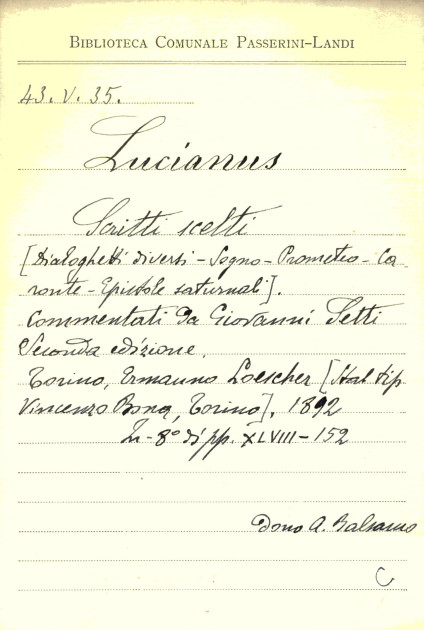 BIBLIOTECA COMUNALE PASSERINI-LANDI
43. V. 35.
Lucianus
Scritti scelti
[Dialoghetti diversi - Sogno - Prometeo - Ca
ronte - Epistole saturnali].
Commentati da Giovanni Setti
Seconda edizione.
Torino, Ermanno Loescher [Stab tip
Vincenzo Bona, Torino], 1892
In - 8° di pp. XLVIII - 152
Dono A. Balsamo
C